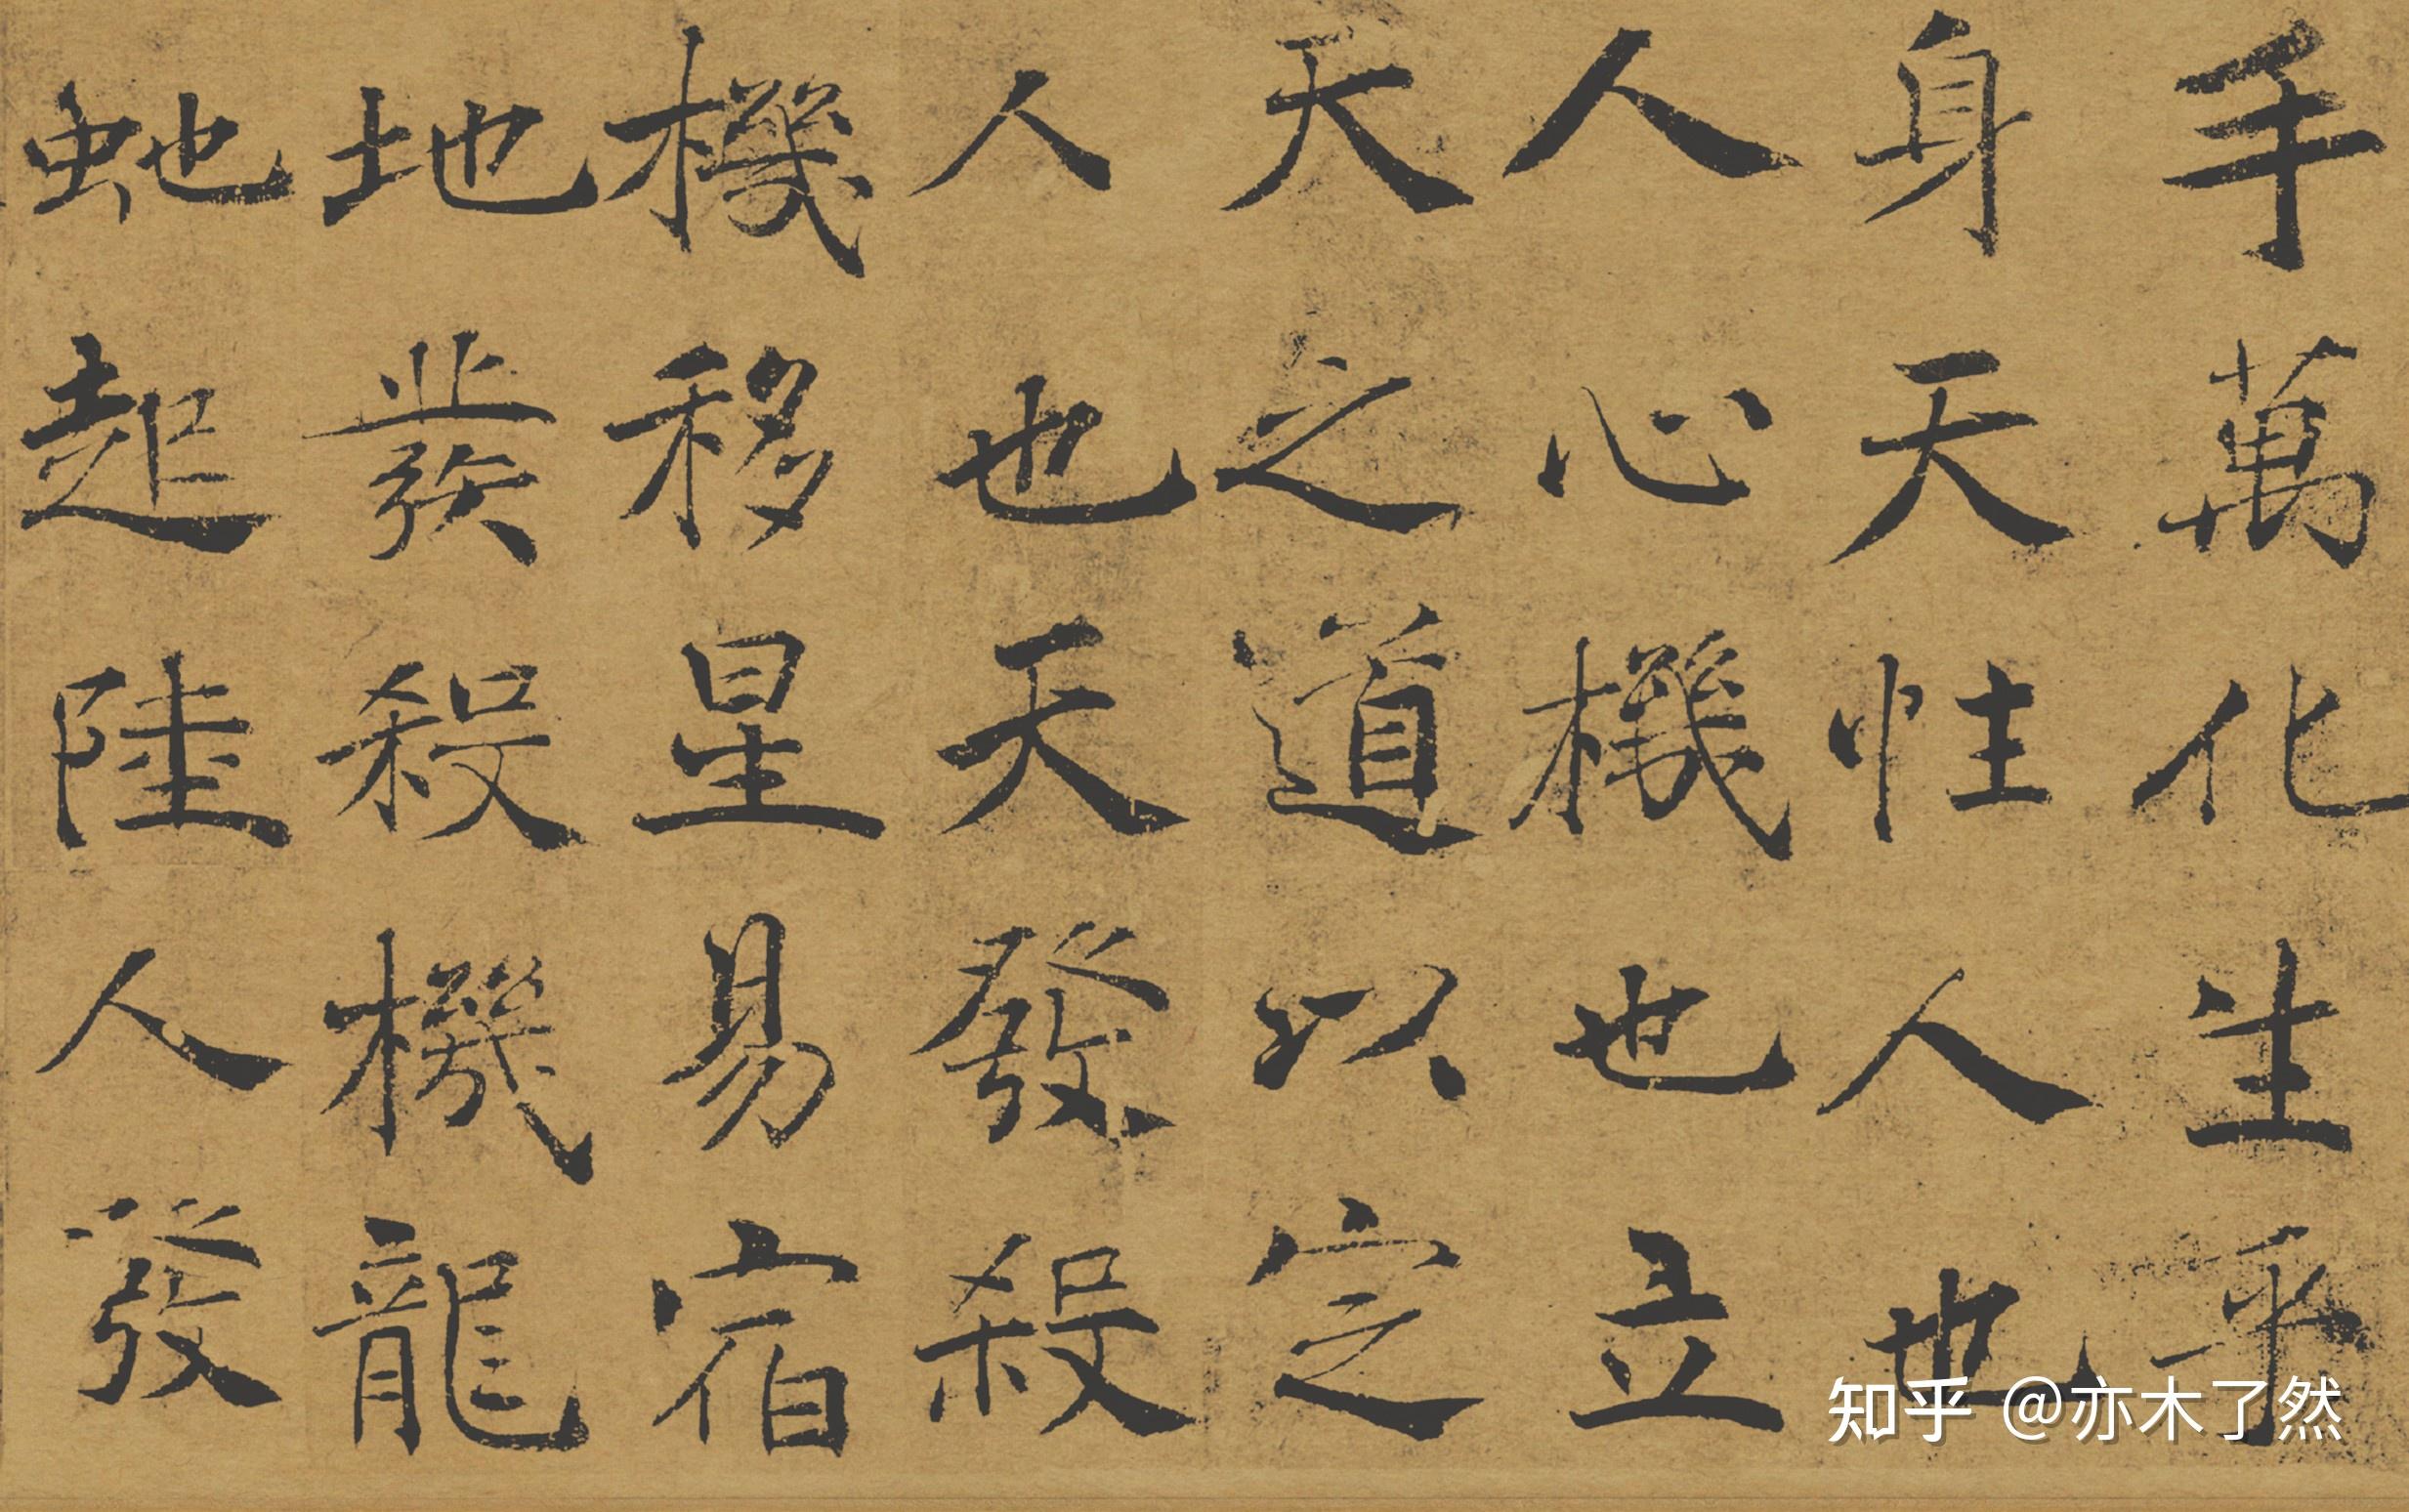 手萬化生乎
身天性人也
人心機也立
天之道以定
人也天發殺
機移星易宿
地發殺機龍
虵起陸人發
知乎 @亦木了然